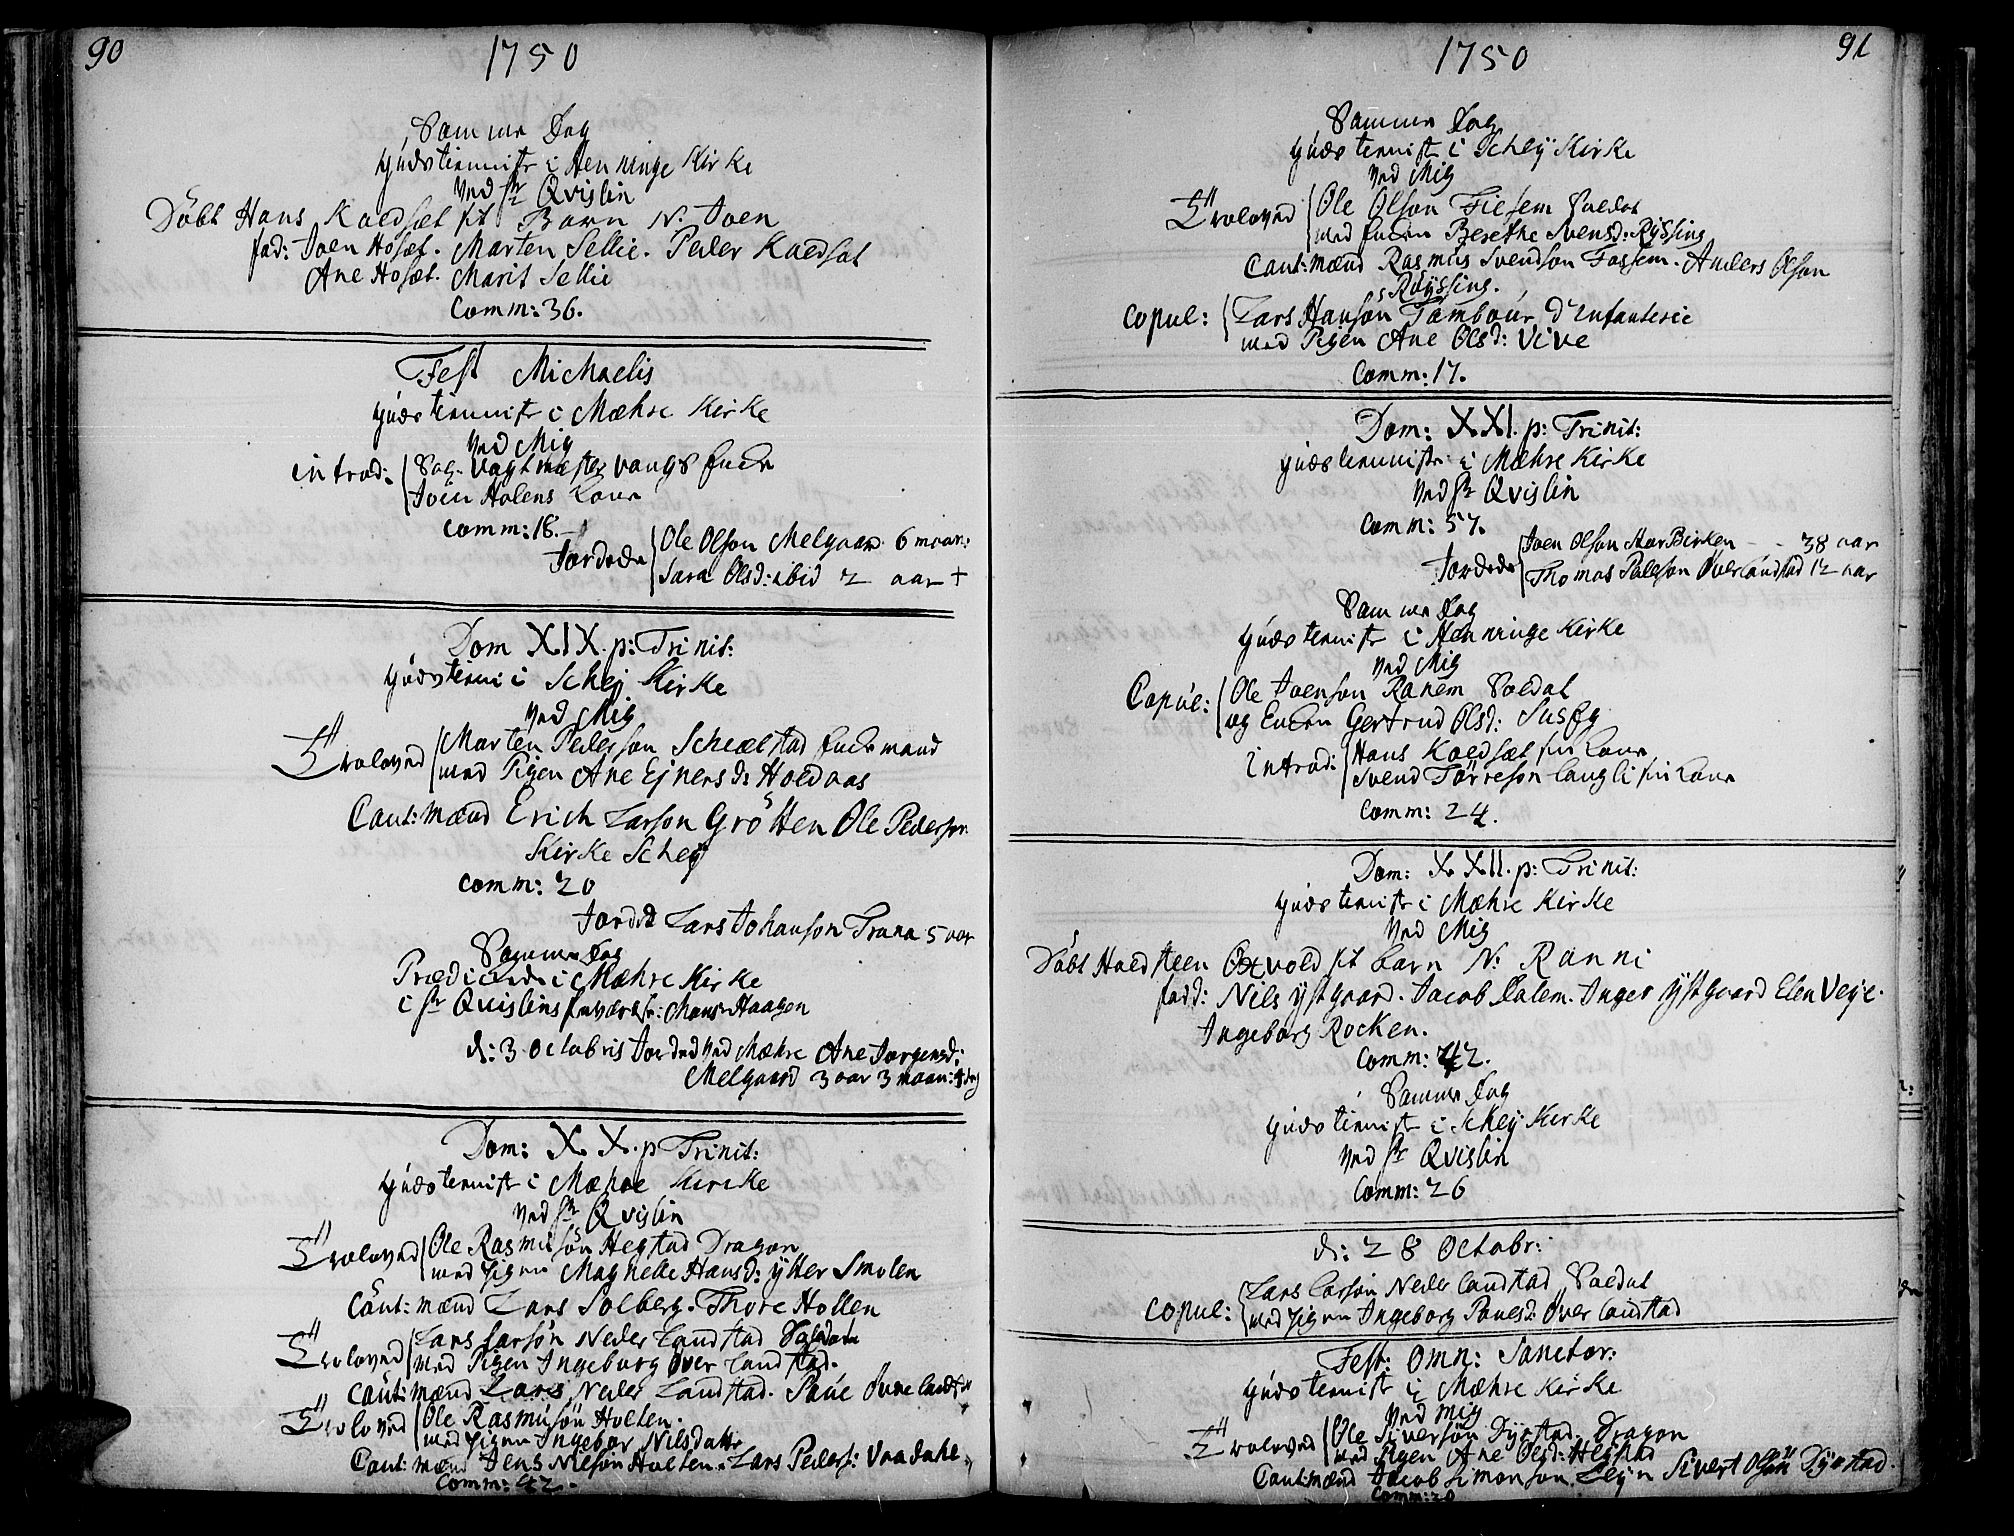 90
1750
Samme Dag
Gudstienniste i Henninge Kirke
Ved Hr Qvislin
Döbt Hans Kaldsæt sit Barn N: Joen
fad: Joen Hosæt. Marten Sellie. Peder Kaldsæt
Ane Hosæt. Marit Sellie
Comm: 36.
Fest Michaelis
Gudstienniste i Mæhre Kirke
Ved Mig
introd: Sal. Vagtmester Vangs Encke
Joen Holens Kone
Comm: 18.
Jordede Ole Olson Melgaard 6 maan:
Sara Olsd: ibid 2 aar +
Dom XIX. p: Trinit:
Gudstienn i Schej Kirke
Ved Mig
Troloved Marten Pederson Schiælstad Enckemand
med Pigen Ane Ejnersd: Holdaas
Caut: Mænd Erich Larson Grötten Ole Pederson
Kirke Schej
Comm: 20
Jorded Lars Johanson Trana 5 aar
Samme Dag
Prædicerede i Mæhre Kirke
i Hr Qvislins fraværelse: Mons: Haagen
d: 3 Octobris Jorded ved Mæhre Ane Jørgensd:
Melgaard 3 aar 3 maan: 4 dag
Dom: XX. p Trinit:
Gudstienniste i Mæhre Kirke
Ved Hr Qvislin
Troloved Ole Rasmusön Hegstad Dragon
med Pigen Magnelle Hansd: ytter Smolen
Caut: mænd Lars Solberg. Thore Hollen
Troloved Lars Larsön Neder Landstad Soldat
med Pigen Ingeborg Over Landstad.
Caut: mænd Lars Neder Landstad. Paúl Övre Landst
Troloved Ole Rasmusön Holten.
med Pigen Ingebor Nilsdatter
Caut: mænd Jens Nilsön Holten. Lars Peders: Vaadahl.
Comm: 42.
1750
91
Samme Dag
Gudstienniste i Schej Kirke
Ved Mig
Troloved Ole Olson Fiesem Soldat
med Encken Berethe Svensd: Ryssing
Caut: mænd Rasmus Svendson Fossem. Anders Olson
Ryssing.
Copul: Lars Hansön Tambour d'Infanterie
med Pigen Ane Olsd: Vive
Comm: 17.
Dom: XXI. p: Trinit:
Gudstienniste i Mæhre Kirke
Ved Hr Qvislin
Comm: 57.
Jordede Joen Olson StorBirken - - 38 aar
Thomas Pederson Överlandstad 12 aar
Samme Dag
Gudstienniste i Henninge Kirke
Ved Mig
Copúl: Ole Joenson Ranem Soldat
og Encken Gertrud Olsd:
introd: Hans Kaldsæt sin Kone
Svend Törreson Langli sin Kone
Comm: 24.
Dom: XXII. p: Trinit:
Gudstienniste i Mæhre Kirke
Ved Mig
Döbt Holdsteen Oxvold sit barn N: Ranni
fadd: Nils ystgaard. Jacob Dalem. Inger ystgaard Elen Veye.
Ingeborg Rocken.
Comm: 42.
Samme Dag
Gudstienniste i Schej Kirke
Ved Hr Qvislin
Comm: 26
d: 28 Octobr:
Copul: Lars Larsön Neder Landstad Soldat
med Pigen Ingeborg Paulsd: Över Landstad
Fest: Omn: Sanctor:
Gudstienniste i Mæhre Kirke
Ved Mig
Troloved Ole Siversön Dyrstad. Dragon
med Pigen Ane Olsd: Hegstad
Caut: mænd Jacob Simonson Lejn Sivert Olsön Dyrstad.
Comm: 20